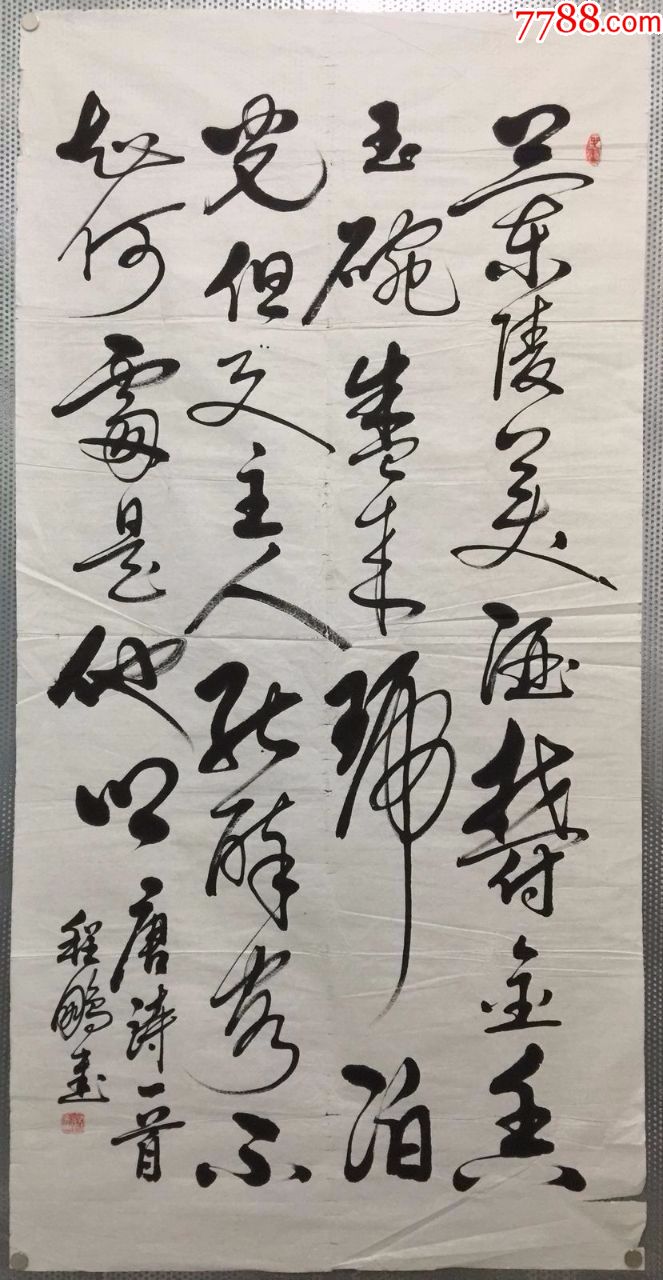 蘭陵美酒鬱金香
玉碗盛来琥珀
光但使主人能醉客不
知何處是他鄉
唐詩一首
程鵬書
7788.com